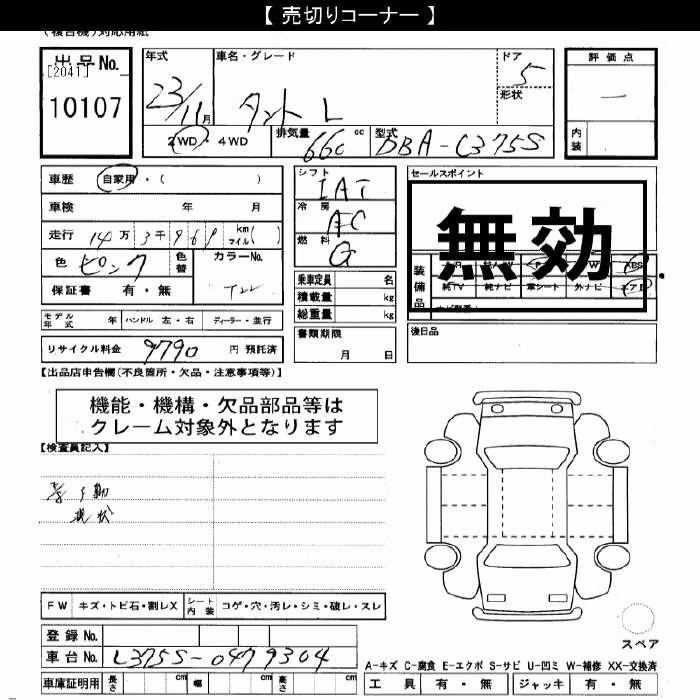 【 売切りコーナー 】
出品No.
[2041]
10107
年式 車名・グレード ドア 5 評価点
23/11月 タント L 形状 一
2WD・4WD 排気量 660 cc 型式 DBA-L375S 内装
車歴 自家用・( ) シフト IAT セールスポイント
車検 年 月 冷房 AC
走行 14万3千969 km マイル( ) 燃料 G
無効
色 ピンク 色替 カラーNo. T22
乗車定員 名
保証書 有・無 積載量 kg
総重量 kg
装備品
純TV 純ナビ 革シート 外ナビ エアB
モデル年式 年 ハンドル 左・右 ディーラー・並行 書類期限 後日品
リサイクル料金 9790 円 預託済 月 日
【出品店申告欄(不良箇所・欠品・注意事項等)】
機能・機構・欠品部品等は
クレーム対象外となります
【検査員記入】
現状
FW キズ・トビ石・割レX シート内装 コゲ・穴・汚レ・シミ・破レ・スレ
登録 No. スペア
車台 No. L375S-0479304
A-キズ C-腐食 E-エクボ S-サビ U-凹ミ W-補修 XX-交換済
車庫証明用 長さ cm 幅 cm 高さ cm 工具 有・無 ジャッキ 有・無